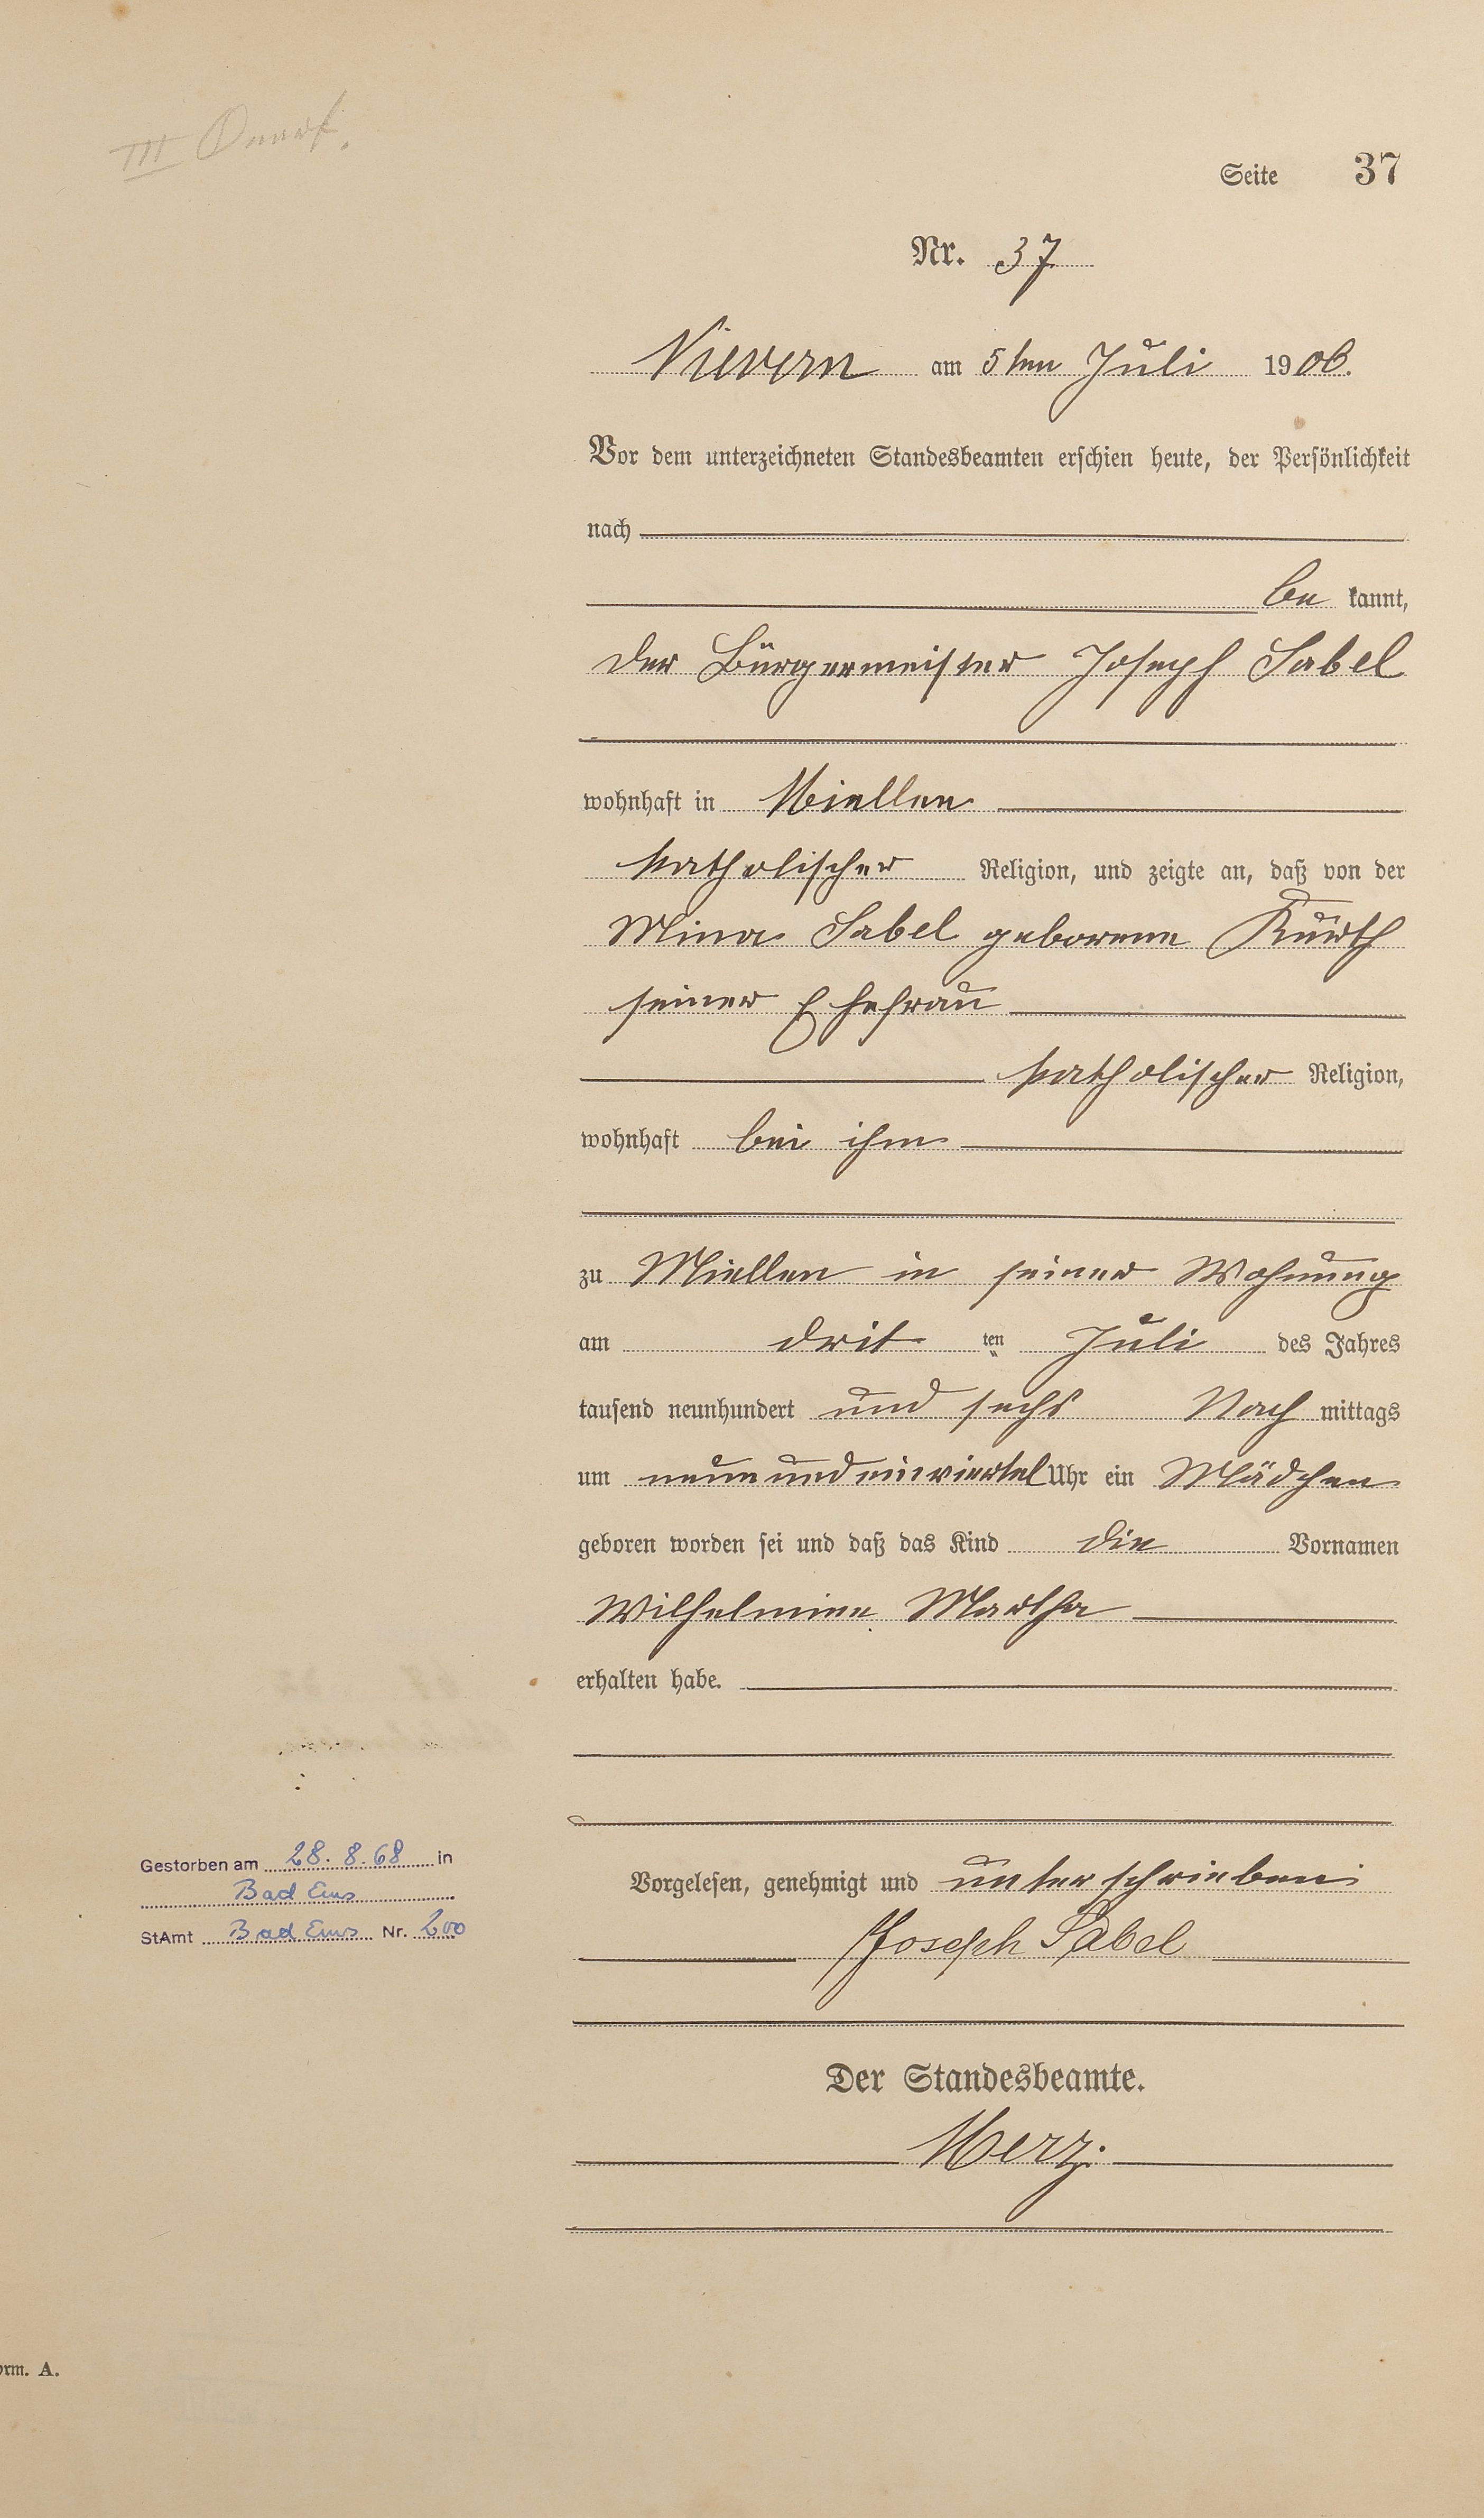 III Quart.
Seite 37
Nr. 37
Nievern am 5ten Juli 1906.
Vor dem unterzeichneten Standesbeamten erschien heute, der Persönlichkeit
nach
be kannt,
der Bürgermeister Joseph Sabel
wohnhaft in Miellen
katholischer Religion, und zeigte an, daß von der
Mina Sabel geborene Kurth
seiner Ehefrau
katholischer Religion,
wohnhaft bei ihm
zu Miellen in seiner Wohnung
am drit ten Juli des Jahres
tausend neunhundert und sechs Nach mittags
um neun und einviertel Uhr ein Mädchen
geboren worden sei und daß das Kind die Vornamen
Wilhelmine Martha
erhalten habe.
Vorgelesen, genehmigt und unterschrieben
Joseph Sabel
Der Standesbeamte.
Merz.
Gestorben am 28. 8. 68 in
Bad Ems
StAmt Bad Ems Nr. 200
orm. A.